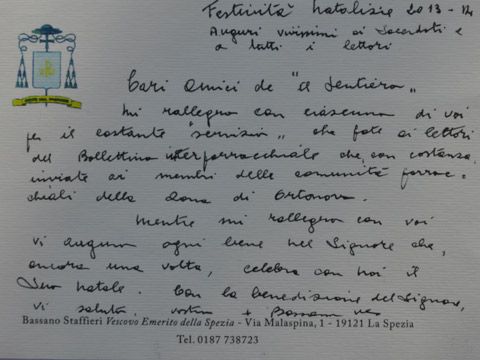 Festività natalizie 2013 - 14
Auguri vivissimi ai Sacerdoti e
a tutti i lettori
Cari Amici de "Il Sentiero"
Mi rallegro con ciascuno di voi
per il costante "servizio" che fate ai lettori
del Bollettino interparrocchiale che, con costanza,
inviate ai membri delle comunità parroc=
chiali della zona di Ortonovo.
Mentre mi rallegro con voi
vi auguro ogni bene nel Signore che,
ancora una volta, celebra con noi il
Suo natale. Con la benedizione del Signore,
vi saluta, vostro + Bassano
Bassano Staffieri Vescovo Emerito della Spezia - Via Malaspina, 1 - 19121 La Spezia
Tel. 0187 738723